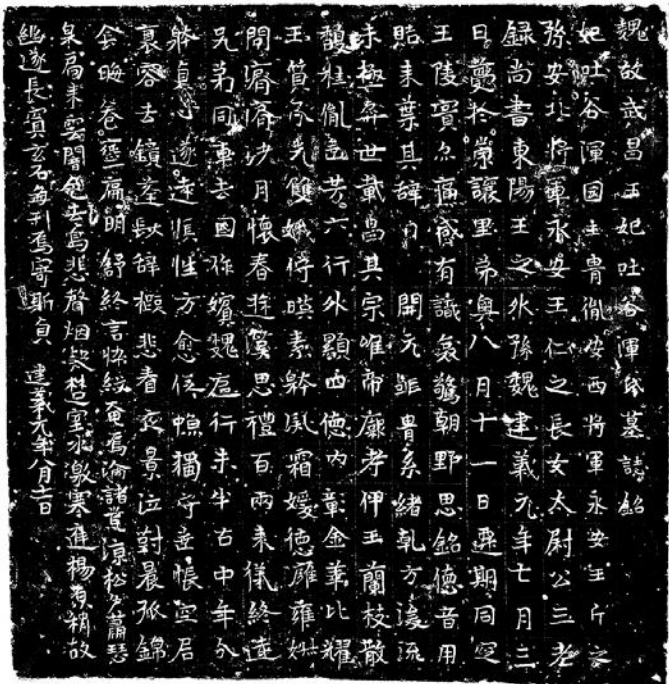 魏故武昌王妃吐谷渾氏墓誌銘
妃吐谷渾國主胄胤安西將軍永安王斤之
孫安北將軍永安王仁之長女太尉公三老
録尚書東陽王之外孫魏建義元年七月三
日薨於崇讓里弟粤八月十一日遷期同窆
王陵實尒痛感有識哀驚朝野思銘德音用
貽来葉其辞曰開元誕胄系緒軋方浚流
未極弈世載昌其宗唯帝厥考伊王蘭枝散
馥桂胤遥芳六行外顯四德内章金華比耀
王質爭光雙娥侔素風霜媛德雍雍
問濟濟汐月懷春遊漢思禮百兩来從終遠
兄弟同車去國作嬪魏庭行未半古中年分
體貞心遂遠慎性方愈獨守垂帳空居
容去鏡臺辞櫬悲看夜景泣對晨孤錦
衾晦卷壁扇明舒終言奄焉淪諸松久蕭瑟
泉扃来雲闇色去鳥悲聲烟室水激寒楊故
幽遂長冥玄石每刊焉寄斯貞建義元年八月十一日